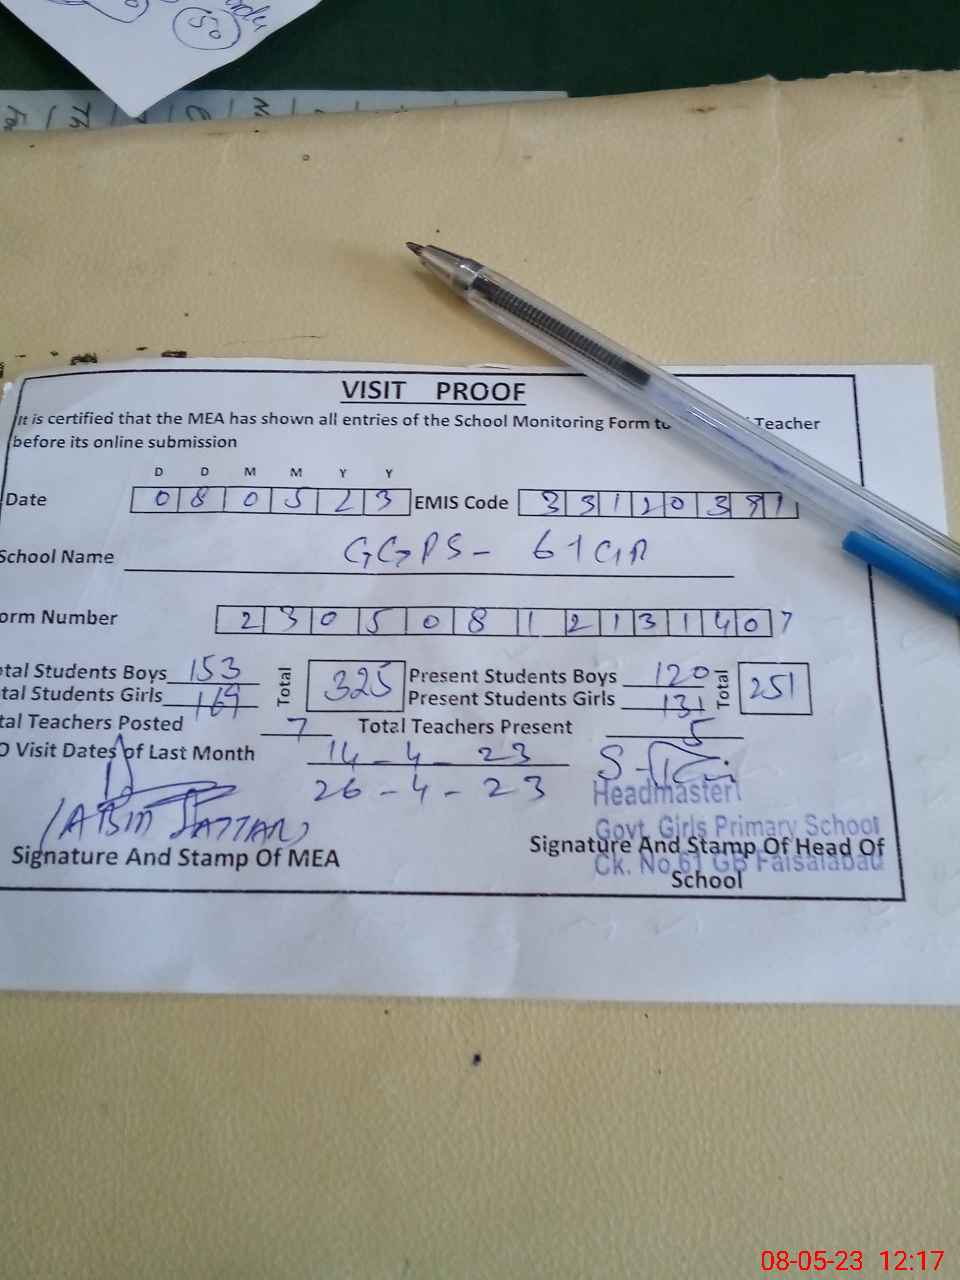 50
VISIT PROOF
It is certified that the MEA has shown all entries of the School Monitoring Form to Teacher
before its online submission
D D M M Y Y
Date 080523 EMIS Code
School Name GGPS - 61 GB
orm Number 23050812131407
tal Students Boys 153 Total 325 Present Students Boys 120 Total 251
tal Students Girls Present Students Girls 131
tal Teachers Posted 7 Total Teachers Present 5
O Visit Dates of Last Month 14-4-23
26-4-23
Headmaster
Govt. Girls Primary School
Signature And Stamp Of MEA Signature And Stamp Of Head Of
Ck. No.61 GB Faisalabad
School
08-05-23 12:17